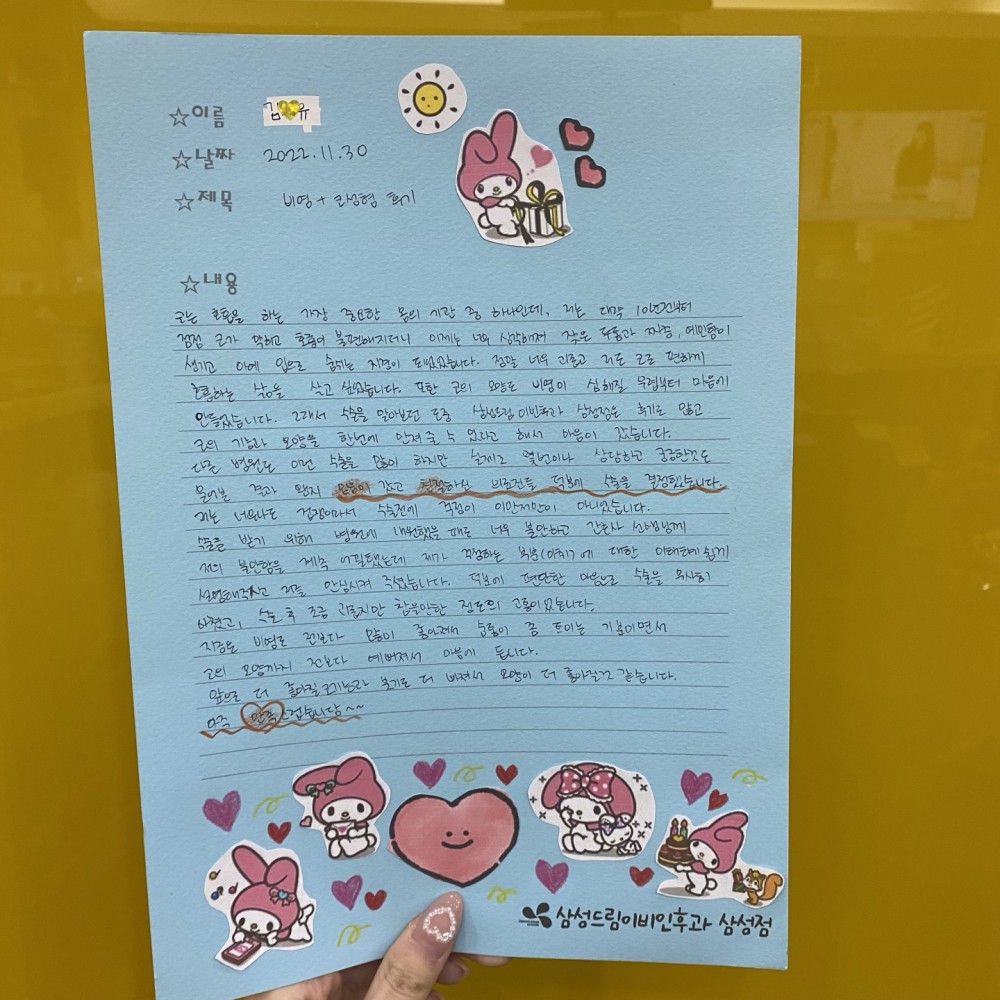 ☆이름 김 유
☆날짜 2022.11.30
☆제목 비염+코성형 후기
☆내용
코는 호흡을 하는 가장 중요한 몸의 기관 중 하나인데, 저는 대략 10년전부터
점점 코가 막히고 호흡이 불편해지더니 이제는 너무 심각해져 잦은 두통과 짜증, 예민함이
생기고 아예 입으로 숨쉬는 지경이 되었었습니다. 정말 너무 괴롭고 저도 코로 편하게
호흡하는 삶을 살고 싶었습니다. 또한 코의 모양도 비염이 심해질 무렵부터 마음에
안들었습니다. 그래서 수술을 알아보던 도중 삼성드림이빈후과 삼성점은 후기도 많고
코의 기능과 모양을 한번에 안겨 줄 수 있다고 해서 마음이 갔습니다.
다른 병원도 이런 수술을 많이 하지만 실제로 몇번이나 상담하고 궁금한것도
물어본 결과 왠지 믿음이 갔고 친절하신 의료진들 덕분에 수술을 결정했습니다.
저는 너무나도 겁쟁이라서 수술전에 걱정이 이만저만이 아니었습니다.
수술을 받기 위해 병원에 내원했을 때도 너무 불안하고 간호사 선생님께
저의 불안함을 계속 어필했는데 제가 걱정하는 부분(마취)에 대한 이해하기 쉽게
설명해주시고 저를 안심시켜 주셨습니다. 덕분에 편안한 마음으로 수술을 무사히
마쳤고, 수술 후 조금 괴롭지만 참을만한 정도의 고통이었습니다.
지금은 비염도 전보다 많이 좋아져서 숨통이 좀 트이는 기분이면서
코의 모양까지 전보다 예뻐져서 마음에 듭니다.
앞으로 더 좋아질 코기능과 붓기도 더 빠져서 모양이 더 좋아질것 같습니다.
아주 만족스럽습니당~~
삼성드림이비인후과 삼성점